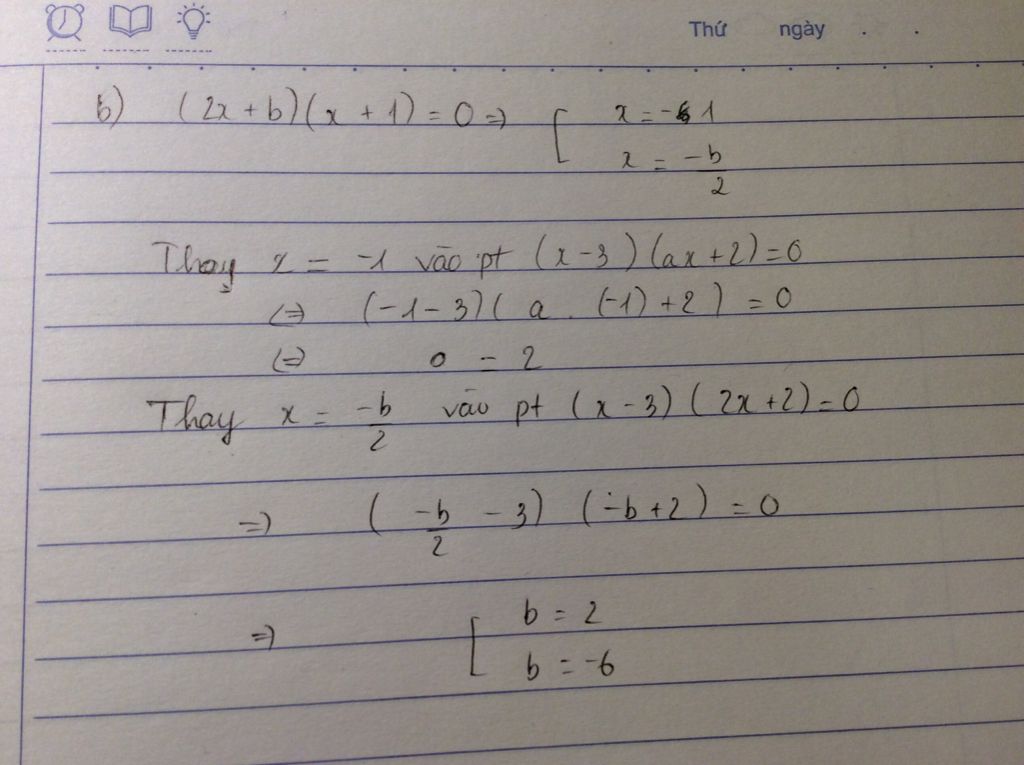 Thứ ngày . .
b) (2x + b)(x + 1) = 0 => [ x = -1
x = -b/2
Thay x = -1 vào pt (x-3)(ax+2)=0
<=> (-1-3)( a . (-1)+2 ) = 0
<=> a = 2
Thay x = -b/2 vào pt (x-3)(2x+2)=0
=> ( -b/2 - 3) (-b+2) = 0
=> [ b = 2
b = -6